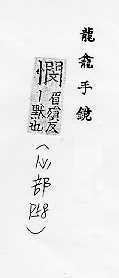 龍龕手鏡
憫眉殞反丨默也
(心部P58)